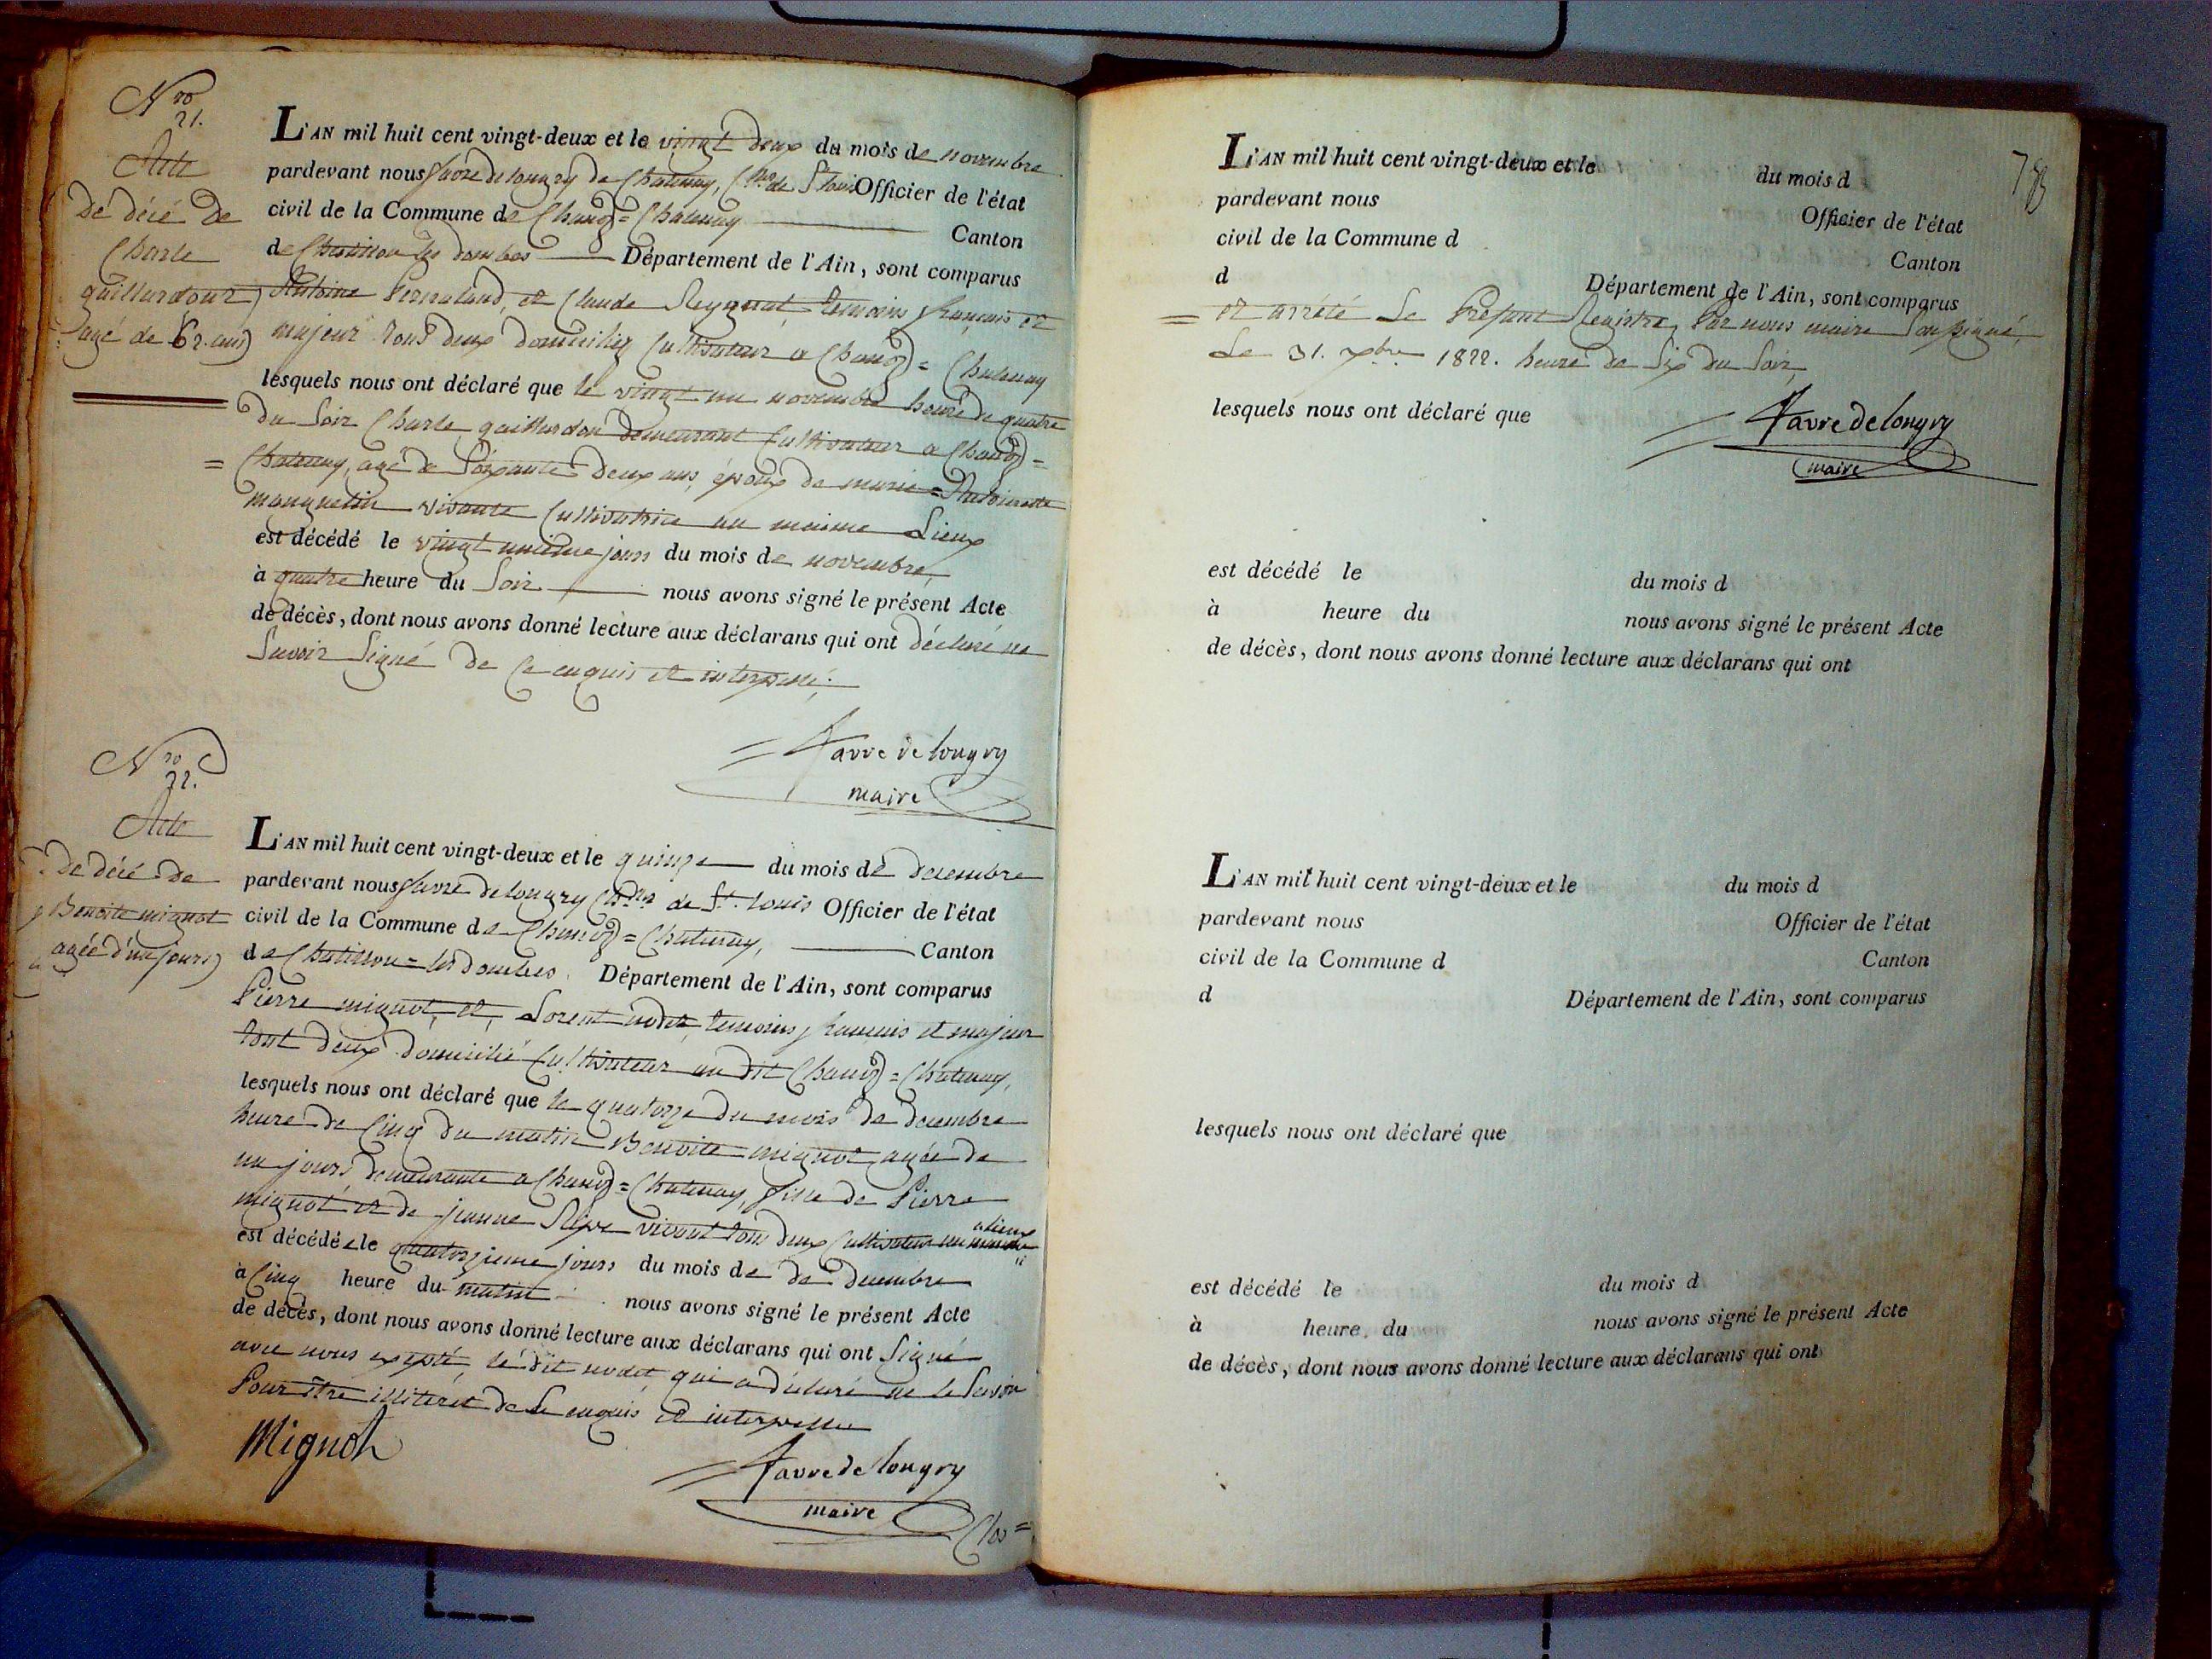 Nro
21.
Acte
de décé de
Charle
gaillardour
agé de 62. ans
L'AN mil huit cent vingt-deux et le vingt deux du mois de novembre
pardevant nous favre de longry de Chatenay, Cher de St louis Officier de l'état
civil de la Commune de Chanoz = Chatenay Canton
de Chatillon les dombes Département de l'Ain, sont comparus
Antoine et Claude Reynat temoins français et
majeur tous deux domiciliez Cultivateur a Chanoz = Chatenay
lesquels nous ont déclaré que le vingt un novembre heure de quatre
du Soir Charle gaillardon demeurant Cultivateur a Chanoz =
= Chatenay, agé de Soixante deux ans, époux de marie = Antoinette
manguelin vivante Cultivatrice au meime Lieux
est décédé le vingt unieme jours du mois de novembre,
à quatre heure du Soir nous avons signé le présent Acte
de décès, dont nous avons donné lecture aux déclarans qui ont déclaré ne
Savoir Signé de Ce enquis et interpellé;
Favre de longry
maire
Nro
22.
Acte
de décé de
Benoite mignot
agée d'un jours
L'AN mil huit cent vingt-deux et le quinze du mois de decembre
pardevant nous favre de longry Cher de St. louis Officier de l'état
civil de la Commune de Chanoz = Chatenay, Canton
de Chatillon = les dombes Département de l'Ain, sont comparus
Pierre mignot, et, Lorent nodet temoins francais et majeur
tout deux domicilié Cultivateur au dit Chanoz = Chatenay,
lesquels nous ont déclaré que le quatorze du mois de decembre
heure de Cinq du matin Benoite mignot agée de
un jours, demeurante a Chanoz = Chatenay, fille de Pierre
mignot et de jeanne vivant tous deux Cultivateur au meime
Lieux
est décédée le quatorzieme jours du mois de de decembre
à Cinq heure du matin nous avons signé le présent Acte
de décès, dont nous avons donné lecture aux déclarans qui ont Signé
avec nous exepté, le dit nodet qui a déclaré ne le Savoir
Pour être illiteret de Ce enquis et interpelle
Mignot
Favre de longry
maire
Clos =
78
L'AN mil huit cent vingt-deux et le du mois d
pardevant nous Officier de l'état
civil de la Commune d Canton
d Département de l'Ain, sont comparus
= et arrété Le Présent Registre, Par nous maire Sousigné,
Le 31. xbre 1822. heure de Six du Soir
lesquels nous ont déclaré que
Favre de longry
maire
est décédé le du mois d
à heure du nous avons signé le présent Acte
de décès, dont nous avons donné lecture aux déclarans qui ont
L'AN mil huit cent vingt-deux et le du mois d
pardevant nous Officier de l'état
civil de la Commune d Canton
d Département de l'Ain, sont comparus
lesquels nous ont déclaré que
est décédé le du mois d
à heure du nous avons signé le présent Acte
de décès, dont nous avons donné lecture aux déclarans qui ont